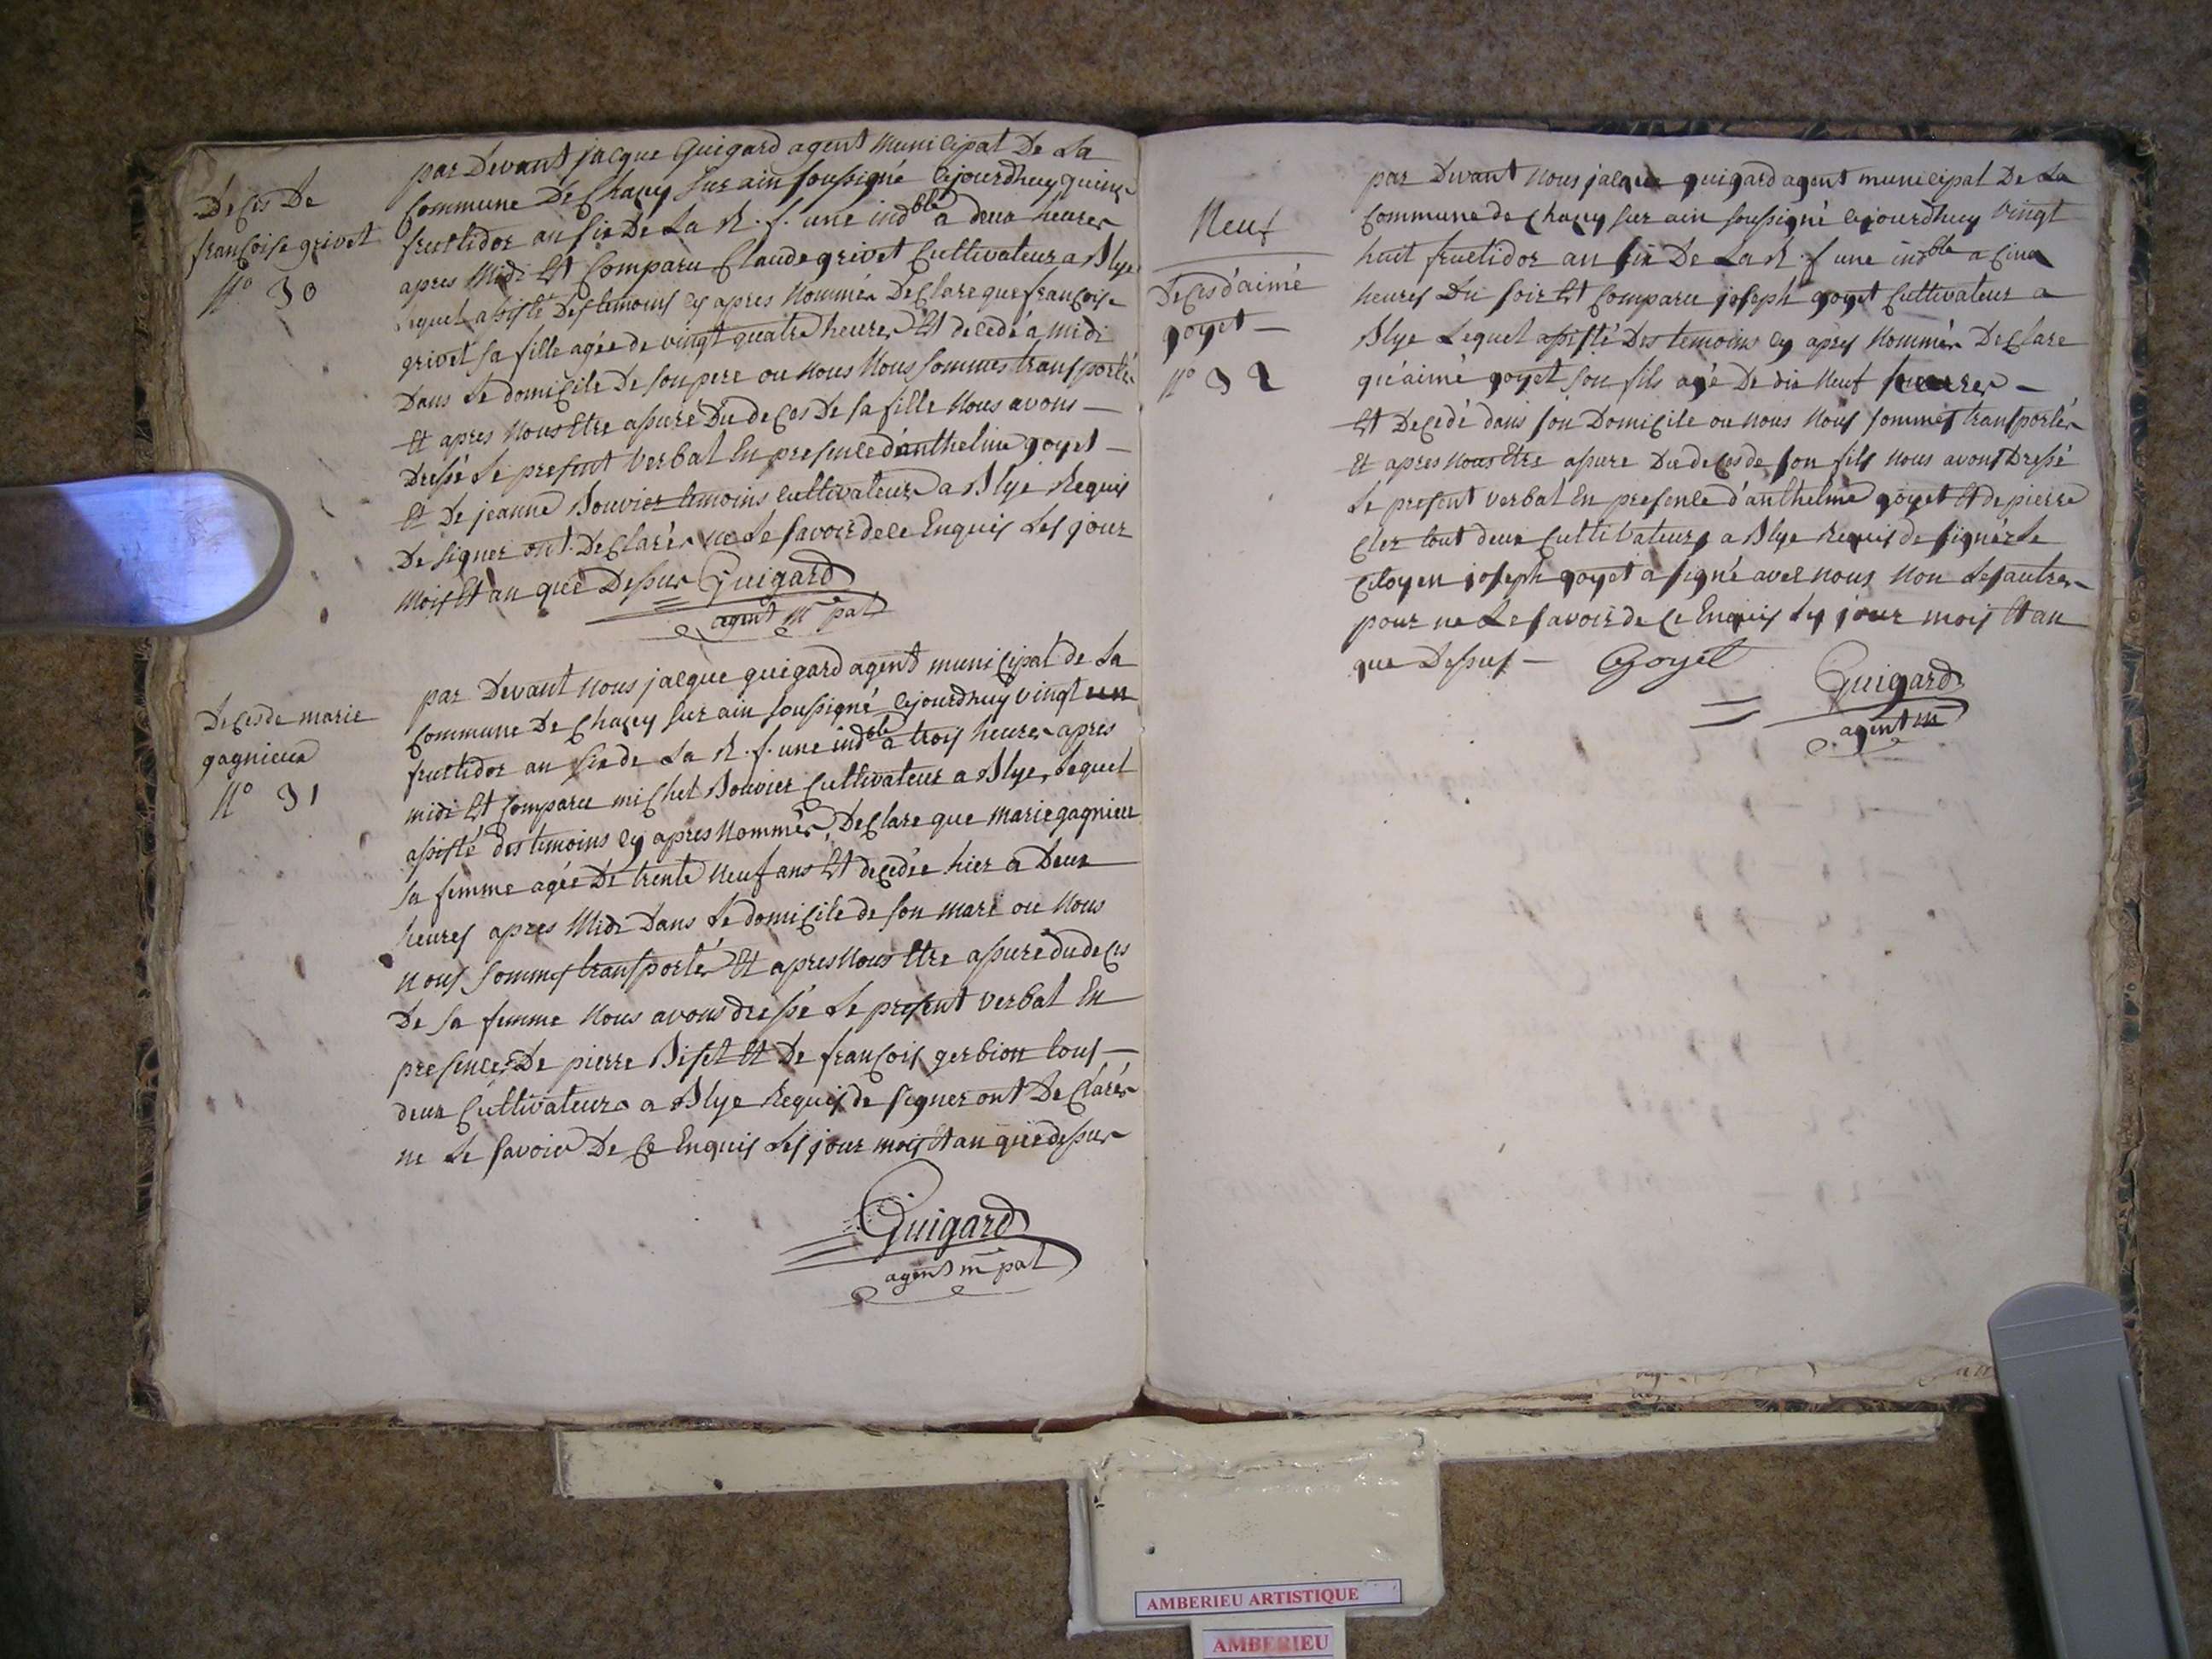 Deces De
francoise grivet
N° 30
par Devant jacque Guigard agent municipal De La
Commune De Chazey sur ain soussigné cejourdhuy quinze
fructidor an six De La R. f. une ind^ble a deux heures
apres Midi Est Comparu Claude grivet Cultivateur a Blye
Lequel assisté Des temoins cy apres Nommés Declare que francoise
grivet sa fille agée de vingt quatre heures Est decedé a midi
Dans Le domicile De son pere ou nous Nous sommes transportés
Et apres Nous Etre assuré Du deces De sa fille Nous avons —
Dressé Le present Verbal En presence d'anthelme goyet —
Et De jeanne Bouvier temoins cultivateurs a Blye Requis
De signer ont Declarés ne Le savoir de ce Enquis Les jour
Mois Et an que Dessus Guigard
agent m^pal
Deces de marie
gagnieux
N° 31
par Devant Nous jacque guigard agent municipal de La
Commune De Chazey sur ain soussigné cejourdhuy vingt un
fructidor an six de La R. f. une ind^ble a trois heures apres
midi Est Comparu michel Bouvier Cultivateur a Blye, Lequel
assisté des temoins cy apres Nommés, Declare que marie gagnieux
sa femme agée De trente Neuf ans Est decedée hier a Deux
heures apres Midi Dans Le domicile de son mari ou Nous
Nous sommes transportés Et apres Nous Etre assuré du deces
De sa femme Nous avons dressé Le present Verbal En
presence De pierre Biset Et De francois gerbion tous —
deux Cultivateurs a Blye Requis de signer ont Declarés
ne Le savoir De Ce Enquis Les jour mois Et an que dessus
Guigard
agent m^pal
Neuf
Deces d'aimé
goyet —
N° 32
par Devant Nous jacque guigard agent municipal De La
Commune de Chazey sur ain soussigné cejourdhuy Vingt
huit fructidor an six De La R. f une ind^ble a cinq
heures Du soir Est Comparu joseph goyet Cultivateur a
Blye Lequel assisté Des temoins cy apres Nommés Declare
qu'aimé goyet son fils agé De dix Neuf heures —
Est Decedé dans son Domicile ou nous Nous sommes transportés
Et apres nous Etre assure Du deces de son fils Nous avons Dressé
Le present verbal En presence d'anthelme goyet Et de pierre
Cler tout deux Cultivateurs a Blye Requis de signer Le
Citoyen joseph goyet a signé avec nous Non Les autres
pour ne Le savoir de ce Enquis Les jour mois Et an
que Dessus — Goyet Guigard
agent m
AMBERIEU ARTISTIQUE
AMBERIEU